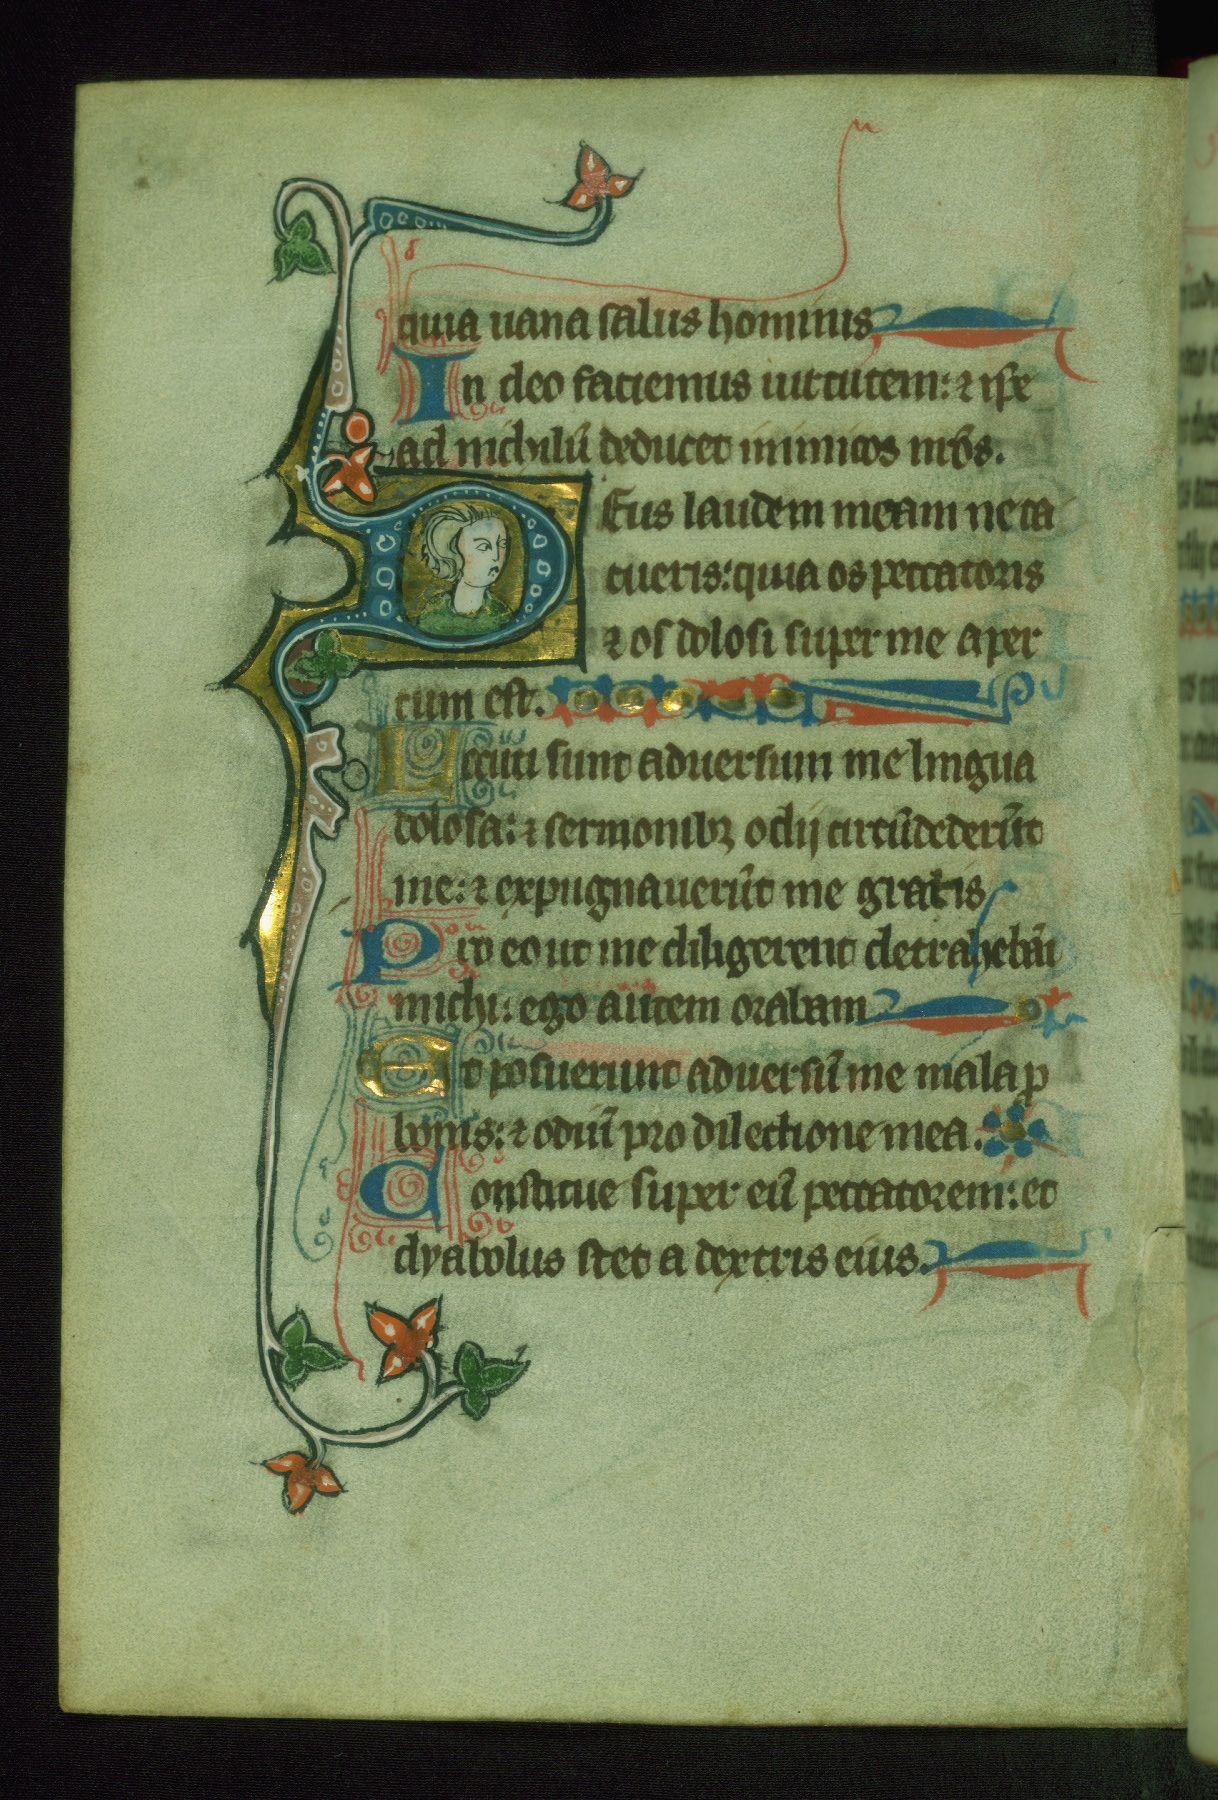 quia uana salus hominis
In deo faciemus uirtutem: ⁊ ip̄e
ad nichilū deducet inimicos nr̄os.
DEus laudem meam ne ta
cueris: quia os peccatoris
⁊ os dolosi super me aper
tum est.
Locuti sunt aduersum me lingua
dolosa: ⁊ sermonibꝫ odij circūdederūt
me: ⁊ expugnauerūt me gratis
Pro eo ut me diligerent detrahebāt
michi: ego autem orabam
Et posuerunt aduersū me mala p̱
bonis: ⁊ odiū pro dilectione mea.
Constitue super eū peccatorem: et
dyabolus stet a dextris eius.